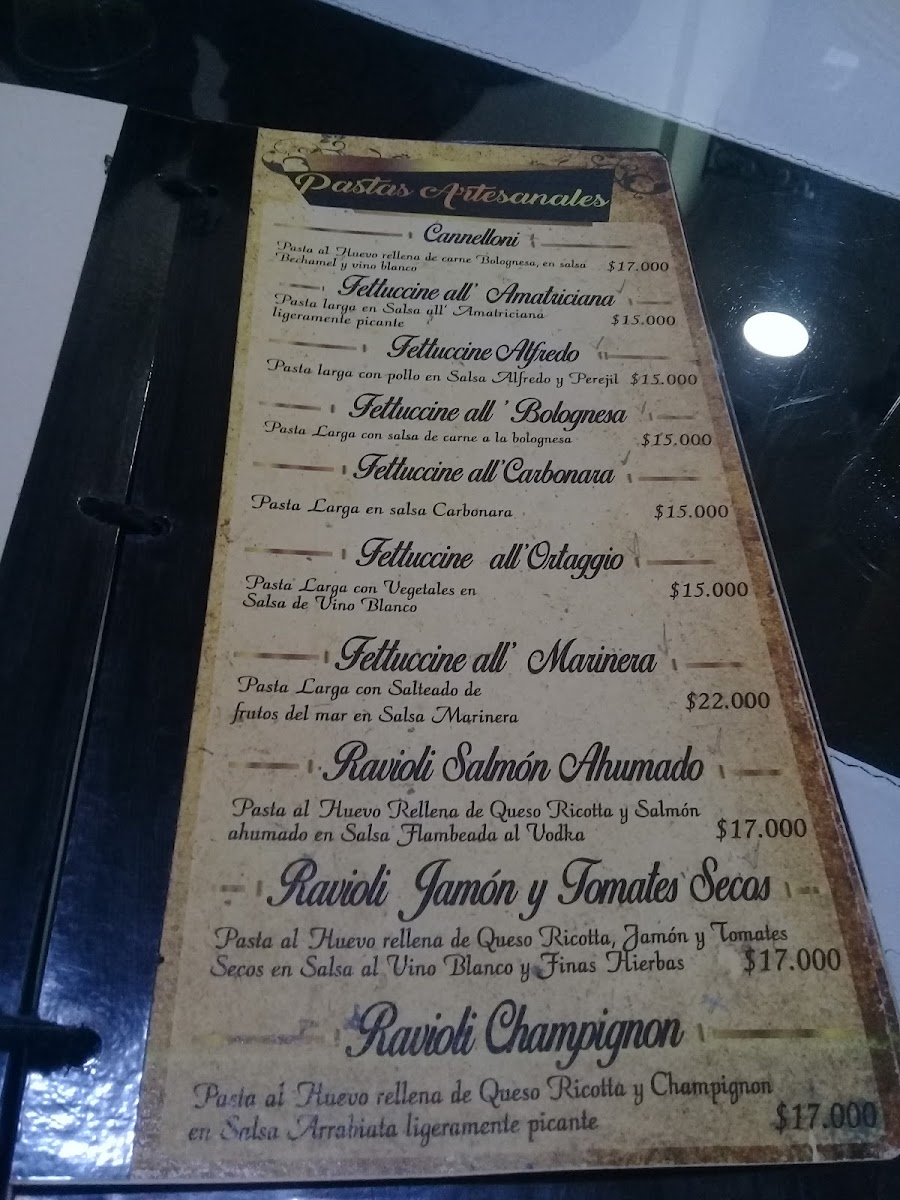 Pastas Artesanales
Cannelloni
Pasta al Huevo rellena de carne Bolognesa, en salsa
Bechamel y vino blanco
$17.000
Fettuccine all' Amatriciana
Pasta larga en Salsa all' Amatriciana
ligeramente picante
$15.000
Fettuccine Alfredo
Pasta larga con pollo en Salsa Alfredo y Perejil $15.000
Fettuccine all 'Bolognesa
Pasta Larga con salsa de carne a la bolognesa $15.000
Fettuccine all'Carbonara
Pasta Larga en salsa Carbonara $15.000
Fettuccine all'Ortaggio
Pasta Larga con Vegetales en
Salsa de Vino Blanco
$15.000
Fettuccine all' Marinera
Pasta Larga con Salteado de
frutos del mar en Salsa Marinera
$22.000
Ravioli Salmón Ahumado
Pasta al Huevo Rellena de Queso Ricotta y Salmón
ahumado en Salsa Flambeada al Vodka $17.000
Ravioli Jamón y Tomates Secos
Pasta al Huevo rellena de Queso Ricotta, Jamón y Tomates
Secos en Salsa al Vino Blanco y Finas Hierbas $17.000
Ravioli Champignon
Pasta al Huevo rellena de Queso Ricotta y Champignon
en Salsa Arrabiata ligeramente picante $17.000